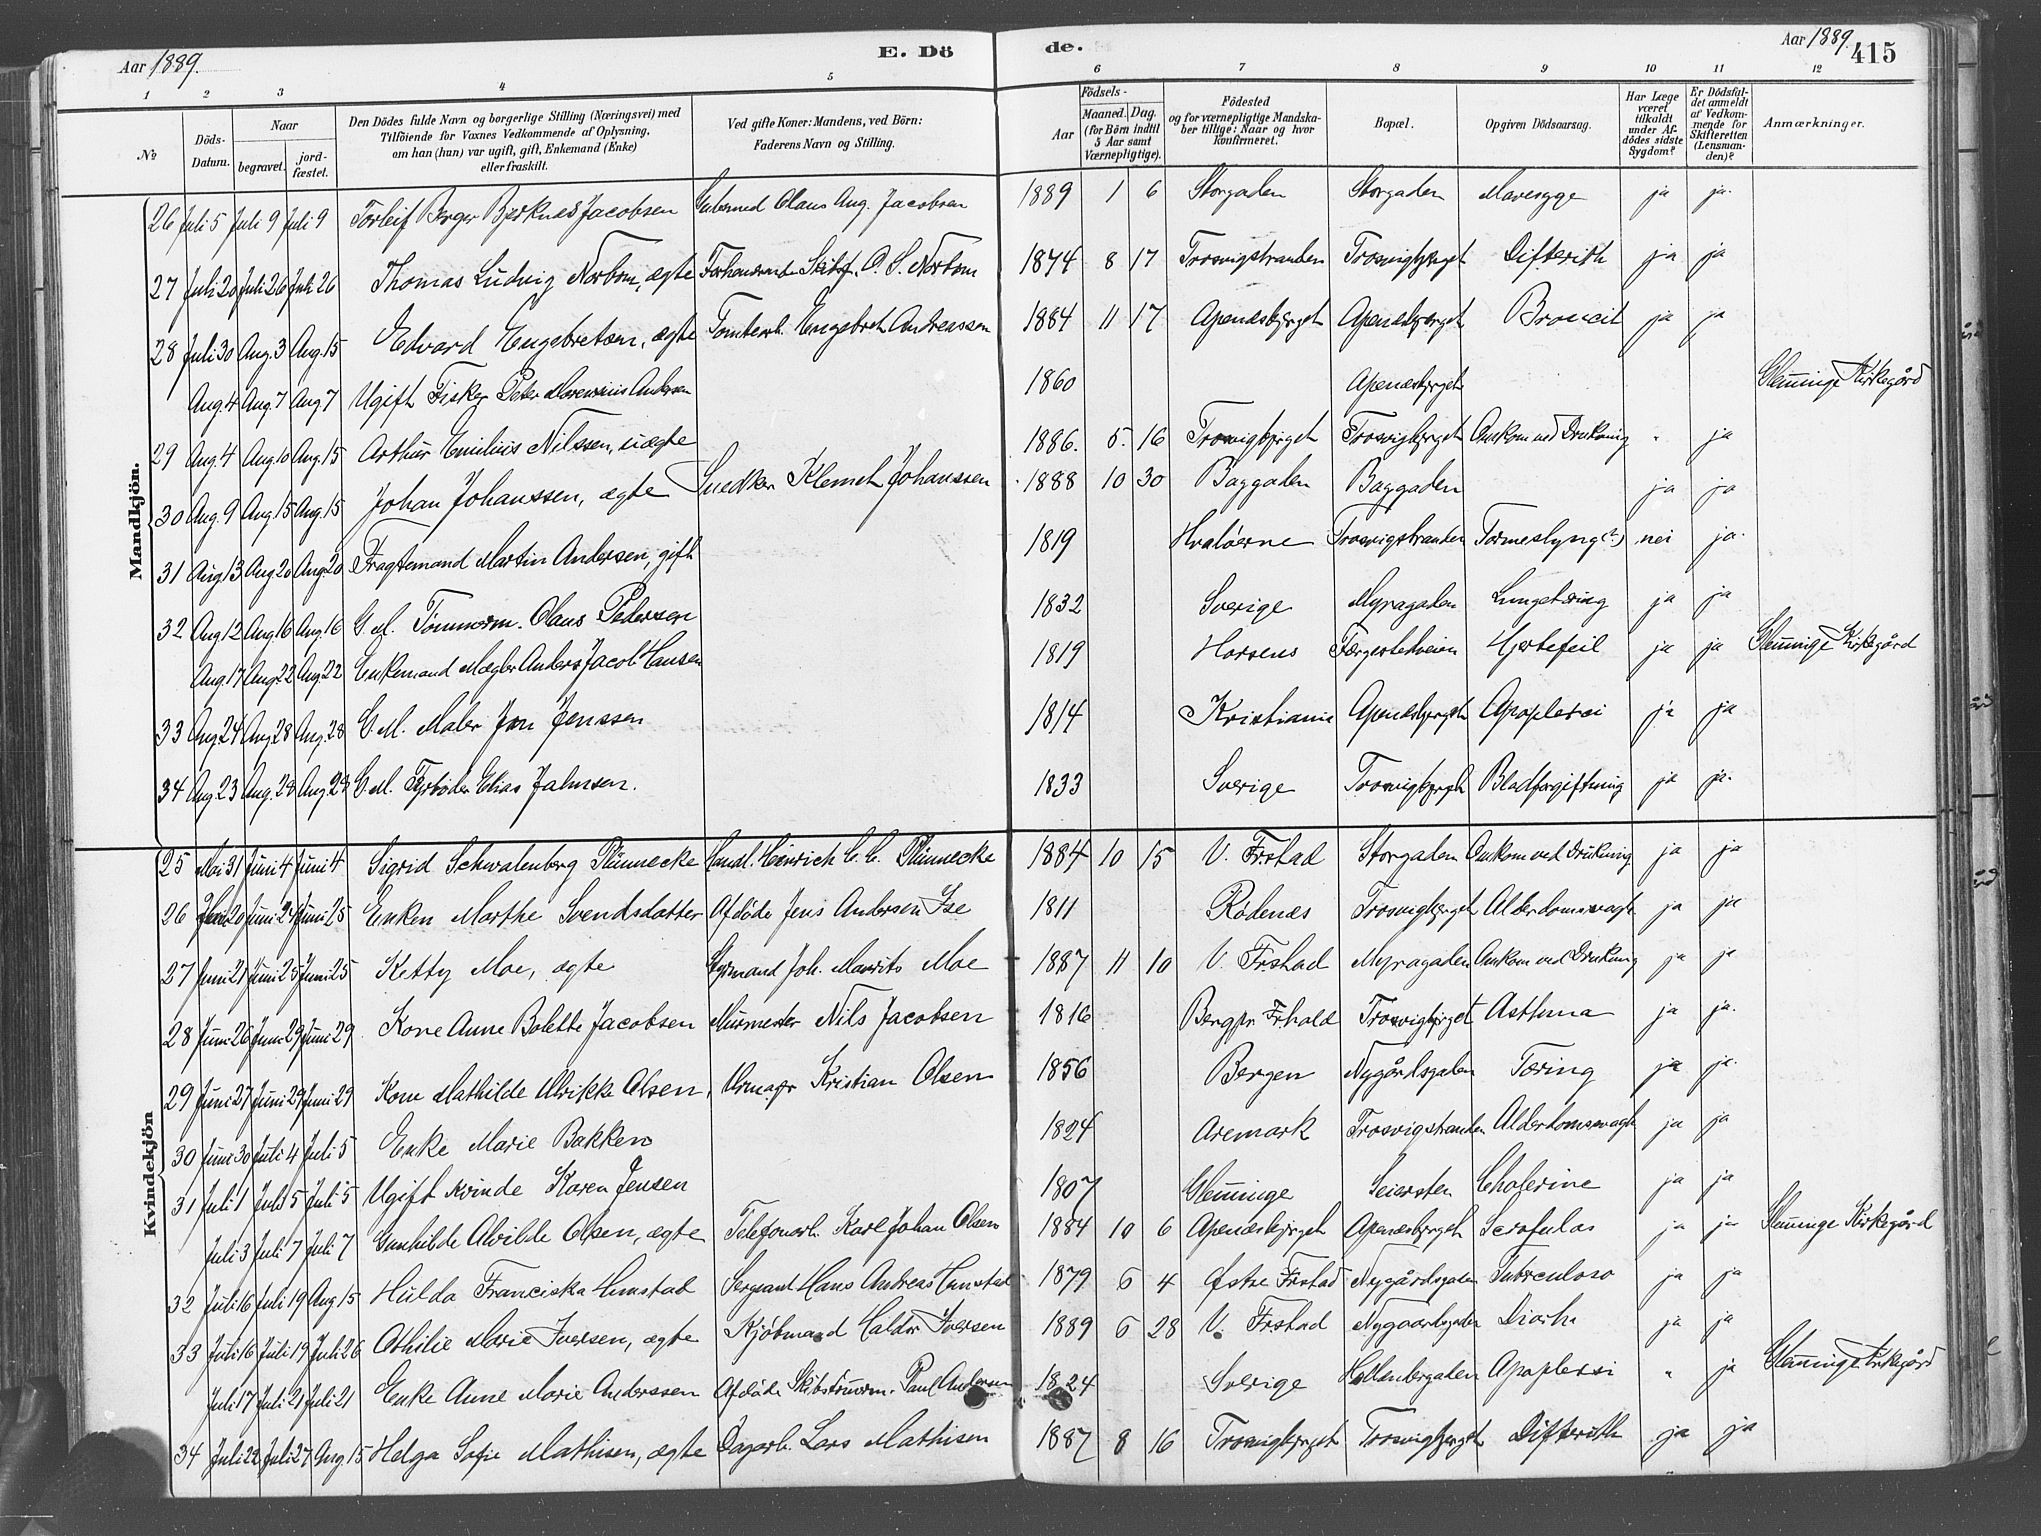 Aar 1889. E. Dö
de. Aar 1889. 415
1 2 3 4 5 6 7 8 9 10 11 12
No
Döds-Datum.
Naar begravet. jordfæstet.
Den Dödes fulde Navn og borgerlige Stilling (Næringsvei) med
Tilföiende for Voxnes Vedkommende af Oplysning,
om han (hun) var ugift, gift, Enkemand (Enke)
eller fraskilt.
Ved gifte Koner: Mandens, ved Börn:
Faderens Navn og Stilling.
Födsels-
Aar Maaned. Dag.
(for Börn indtil 5 Aar samt Værnepligtige).
Födested
og for værnepligtige Mandskaber tillige: Naar og hvor konfirmeret.
Bopæl.
Opgiven Dödsaarsag.
Har Læge været tilkaldt under Afdödes sidste Sygdom?
Er Dödsfaldet anmeldt af Vedkommende for Skifteretten (Lensmanden)?
Anmærkninger.
Mandkjön.
26 Juli 5 Juli 9 Juli 9 Torleif Berger Bjerknæs Jacobsen Olaus Aug. Jacobsen 1889 1 6 Storgaden Storgaden Mavesyge ja ja.
27 Juli 20 Juli 26 Juli 26 Thomas Ludvig Norbom, ægte O. S. Norbom 1874 8 17 Trosvigstranden Trosvigbjerget Difterith ja ja
28 Juli 30 Aug. 3 Aug. 15 Edvard Engebretsen, ægte Tomtearb. Engebret Andreassen 1884 11 17 Apenæsbjerget Apenæsbjerget Broncit ja ja
Aug. 4 Aug. 7 Aug 7 Ugift Fisker Peter Andersen 1860 Apenæsbjerget Glemminge Kirkegård
29 Aug. 4 Aug. 10 Aug. 15 Arthur Emilius Nilssen, uægte 1886. 5. 16 Trosvigbjerget Trosvigbjerget Omkom ved Drukning " ja
30 Aug. 9 Aug. 15 Aug. 15 Johan Johanssen, ægte Snedker Klemet Johanssen 1888 10 30 Baggaden Baggaden ja ja
31 Aug 13 Aug 20 Aug. 20 Fragtemand Martin Andersen, gift 1819 Hvaløerne Trosvigstranden Tarmeslyng (?) nei ja.
32 Aug 12 Aug. 16 Aug. 16 G. M. Tømmerm. Olaus Pedersen 1832 Sverige Myragaden Lungetæring ja ja
Aug. 17 Aug. 22 Aug. 22 Enkemand Mægler Anders Jacob Hansen 1819 Horsens Færgestedveien Hjertefeil ja ja Glemminge Kirkegård
33 Aug. 24 Aug. 28 Aug. 28 G. M. Maler Jon Jenssen 1814 Kristiania Apenæsbjerget Apoplexi ja ja
34 Aug. 23 Aug. 28 Aug. 28 G. M. Fyrbøder Elias Jahnsen. 1833 Sverige Trosvigbjerget Blodforgiftning ja ja.
Kvindekjön
25 Mai 31 Juni 4 Juni 4 Sigrid Schwalenberg Plünnecke Handl. Heinrich C. C. Plünnecke 1884 10 15 V. Frstad Storgaden Omkom ved Drukning ja ja
26 Juni 20 Juni 24 Juni 25 Enken Marthe Svendsdatter Afdöde Jens Andersen Ise 1811 Rødenæs Trosvigbjerget Alderdomssvagh. ja ja
27 Juni 21 Juni 25 Juni 25 Ketty Moe, ægte Styrmand Joh. Maurits Moe 1887 11 10 V. Frstad Myragaden Omkom ved Drukning ja ja
28 Juni 26 Juni 29 Juni 29 Kone Anne Bolette Jacobsen Murmester Nils Jacobsen 1816 Berg pr. Frhald Trosvigbjerget Asthma ja ja.
29 Juni 27 Juni 29 Juni 29 Kone Mathilde Ulrikke Olsen, Urmagr Kristian Olsen 1856 Bergen Nygårdsgaden Tæring ja ja.
30 Juni 30 Juli 4 Juli 5 Enke Marie Bakken 1824 Aremark Trosvigstranden Alderdomssvagh ja ja
31 Juli 1 Juli 5 Juli 5 Ugift Kvinde Karen Jensen 1807 Glemminge Seiersten Cholerine ja ja
Juli 3 Juli 7 Juli 7 Gunhilde Alvilde Olsen, ægte Telefonarb. Karl Johan Olsen 1884 10 6 Apenæsbjerget Apenæsbjerget Scrofulas ja ja Glemminge Kirkegård
32 Juli 16 Juli 19 Aug 15 Hulda Franciska Hunstad Sergeant Hans Andreas Hunstad 1879 6 4 Østre Frstad Nygårdsgaden Tuberculose ja ja
33 Juli 16 Juli 19 Juli 26 Othilie Marie Iversen, ægte Kjøbmand Haldor Iversen 1889 6 28 V. Frstad Nygaardsgaden Diarhe ja ja
Juli 17 Juli 21 Juli 21 Enke Anne Marie Anderssen Afdöde Skibstömrm. Paul Andersen 1824 Sverige Hollenbergaden Apoplexi " ja Glemminge Kirkegård
34 Juli 22 Juli 27 Aug. 15 Helga Sofie Mathisen, ægte Dagarb. Lars Mathisen 1887 8 16 Trosvigbjerget Trosvigbjerget Difterith ja ja